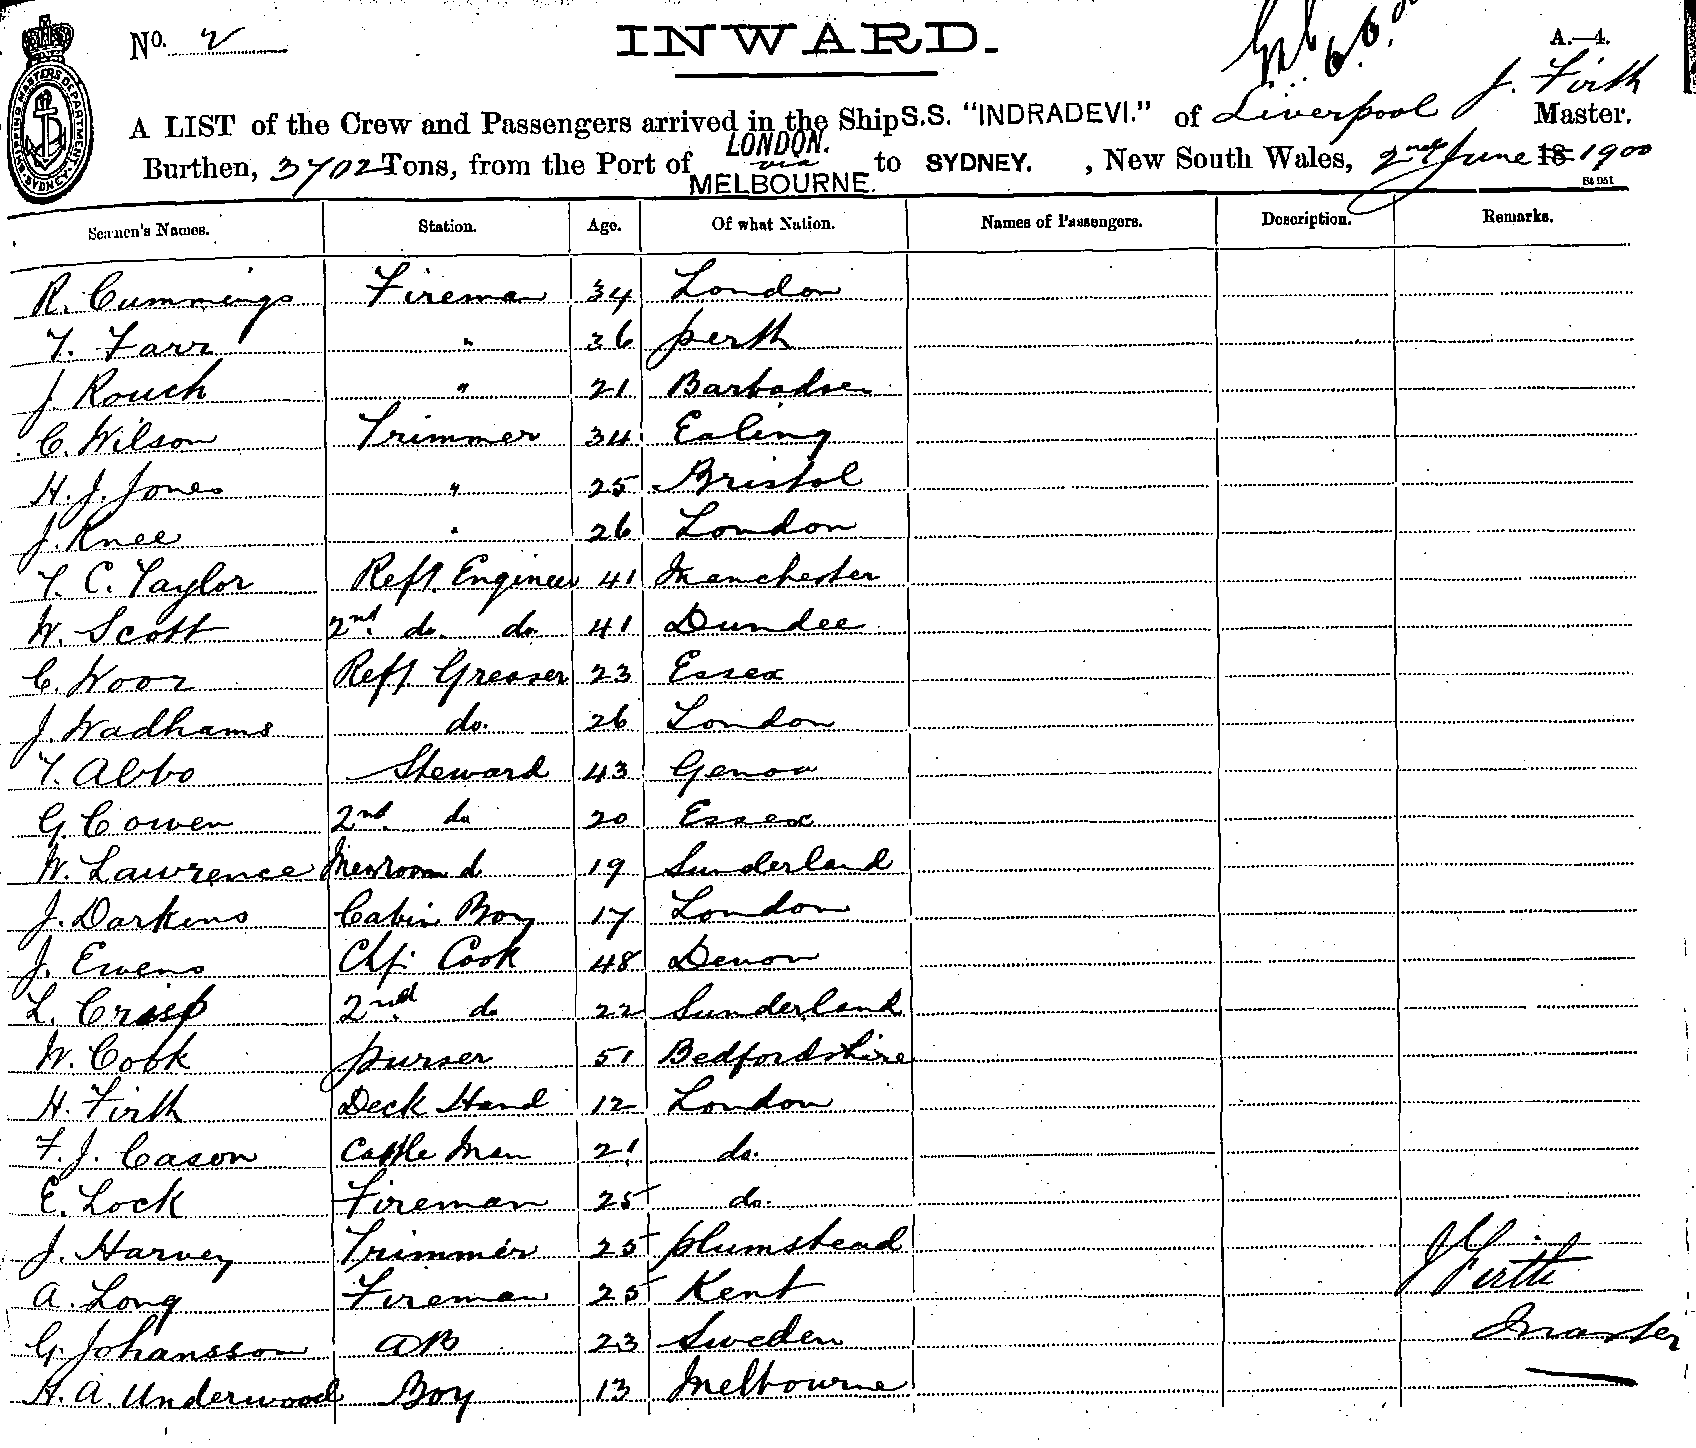 No. 2
INWARD.
A.—4.
SHIPPING MASTERS DEPARTMENT SYDNEY
A LIST of the Crew and Passengers arrived in the Ship S.S. "INDRADEVI." of Liverpool J. Firth Master.
Burthen, 3702 Tons, from the Port of LONDON. via MELBOURNE. to SYDNEY. , New South Wales, 2nd June 18 1900
Seamen's Names. Station. Age. Of what Nation. Names of Passengers. Description. Remarks.
R. Cummings Fireman 34 London
T. Farr " 36 Perth
J. Rouch " 21 Barbadoes
C. Wilson Trimmer 34 Ealing
H. J. Jones " 25 Bristol
J. Knee " 26 London
T. C. Taylor Refr. Engineer 41 Manchester
W. Scott 2nd. do. do. 41 Dundee
C. Woor Refr. Greaser 23 Essex
J. Wadhams do. 26 London
T. Abbo Steward 43 Genoa
G. Cowen 2nd. do 20 Essex
W. Lawrence Messroom d 19 Sunderland
J. Darkens Cabin Boy 17 London
J. Ewens Chf. Cook 48 Devon
L. Crisp 2nd do 22 Sunderland
W. Cook purser 51 Bedfordshire
H. Firth Deck Hand 12 London
F. J. Cason Cattle Man 21 do.
E. Lock Fireman 25 do.
J. Harvey Trimmer 25 plumstead
A. Long Fireman 25 Kent
J Firth
G. Johansson AB 23 Sweden
Master
H. A. Underwood Boy 13 Melbourne